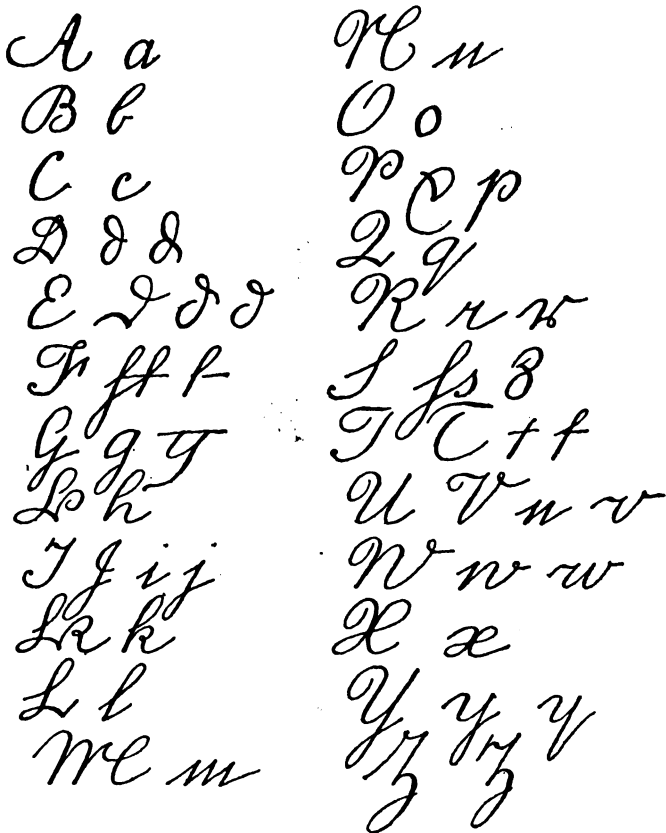 A a
B b
C c
D d d
E D d d
F ff f
G g g
H h
I J i j
K k
L l
M m
N n
O o
P P p
Q q
R r r
S ſs s
T T t t
U V u v
W w w
X x
Y y y
Z z